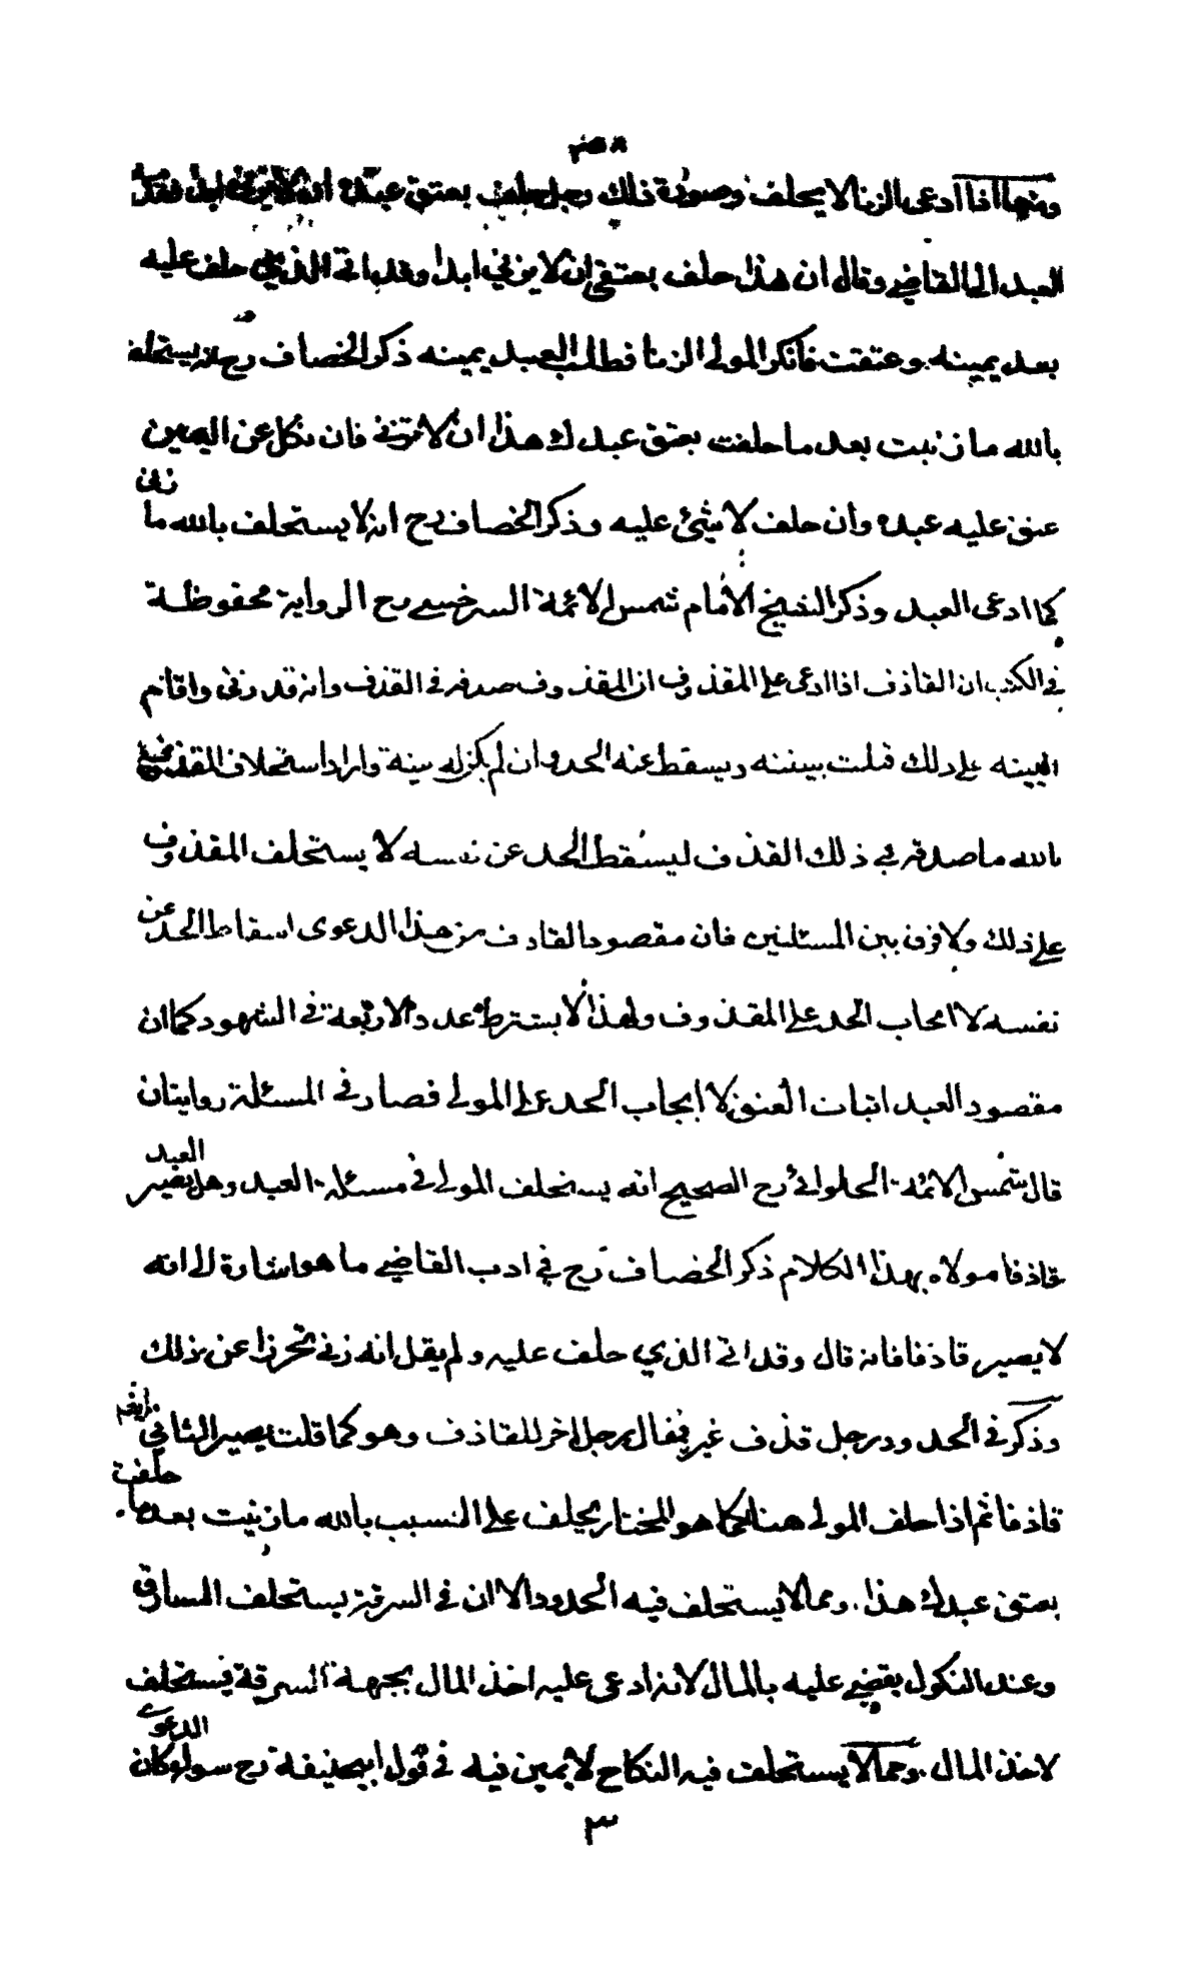 ومنها اذا ادعى الزنا لا يحلف وصورة ذلك رجل حلف بعتق عبده ان لا يزني ابدا فقدم
العبد الى القاضي وقال ان هذا حلف بعتقي ان لا يزني ابدا وقد اتى الذي حلف عليه
بعد يمينه وعتقت فانكر المولى الزنا فطلب العبد يمينه ذكر الخصاف رح انه يستحلف
بالله ما زنيت بعد ما حلفت بعتق عبدك هذا ان لا تزني فان نكل عن اليمين
عتق عليه عبده وان حلف لا شيئ عليه وذكر الخصاف رح انه لا يستحلف بالله ما زنى
كما ادعى العبد وذكر الشيخ الامام شمس الائمة السرخسي رح الرواية محفوظة
في الكتب ان القاذف اذا ادعى على المقذوف ان المقذوف صدقه في القذف وانه قد زنى واقام
البينه على ذلك قبلت بينته ويسقط عنه الحد وان لم يكن له بينة واراد استحلاف المقذوف
بالله ما صدقه في ذلك القذف ليسقط الحد عن نفسه لا يستحلف المقذوف
على ذلك ولا فرق بين المسئلتين فان مقصود القاذف من هذا الدعوى اسقاط الحد عن
نفسه لا ايجاب الحد على المقذوف ولهذا لا يشترط عدد الاربعة في الشهود كما ان
مقصود العبد اثبات العتق لا ايجاب الحد على المولى فصار في المسئلة روايتان
قال شمس الائمة الحلوائي رح الصحيح انه يستحلف المولى في مسئلة العبد وهل يصير العبد
قاذفا مولاه بهذا الكلام ذكر الخصاف رح في ادب القاضي ما هو اشارة الى انه
لا يصير قاذفا فانه قال وقد اتى الذي حلف عليه ولم يقل انه زنى تحرزا عن ذلك
وذكر في الحدود رجل قذف غيره فقال رجل اخر للقاذف وهو كما قلت يصير الثاني ايضا
قاذفا ثم اذا حلف المولى هنا كما هو المختار يحلف على السبب بالله ما زنيت بعد ما حلفت
بعتق عبدك هذا. ومما لا يستحلف فيه الحدود الا ان في السرقة يستحلف السارق
وعند النكول يقضي عليه بالمال لانه ادعى عليه اخذ المال بجهة السرقة فيستحلف
لاخذ المال. ومما لا يستحلف فيه النكاح لا يمين فيه في قول ابيحنيفة رح سواء كان الدعوى
٣